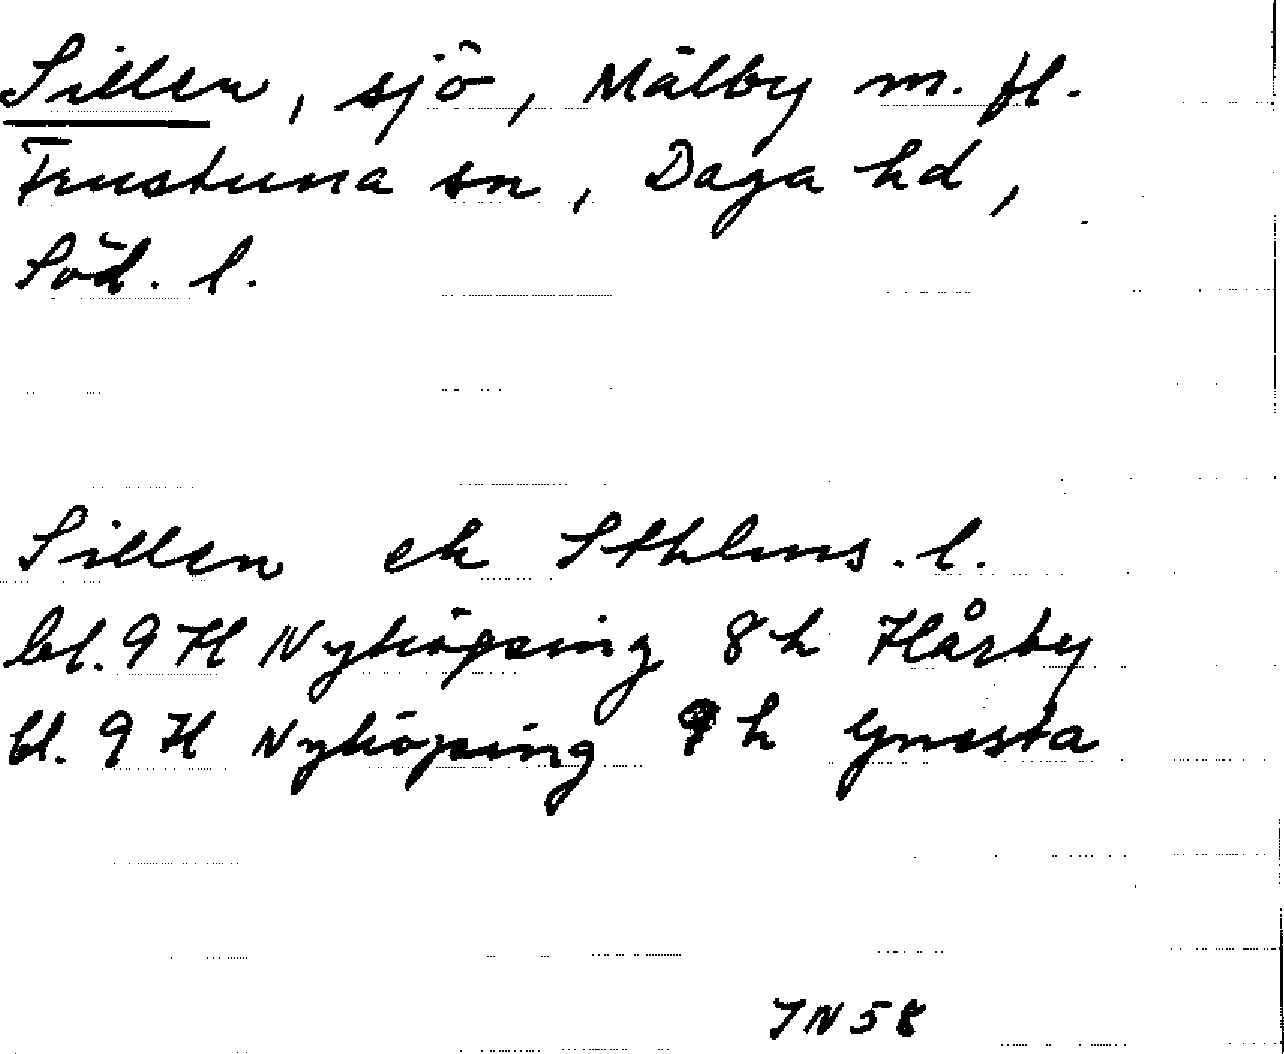 Sillen, sjö, Mälby m. fl.
Frustuna sn, Daga hd,
Söd. l.
Sillen ek Sthlms. l.
bl. 9 H Nyköping 8 h Hårby
bl. 9 H Nyköping 9 h Gnesta
JN 58